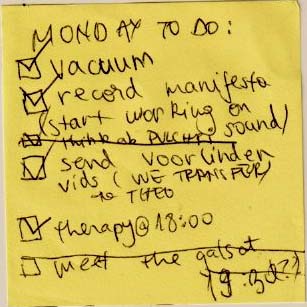 MONDAY TO DO:
vacuum
record manifesto
(start working on
sound)
send voorlinden
vids (WE TRANSFER)
to THEO
therapy@18:00
meet the gals at
19:30?